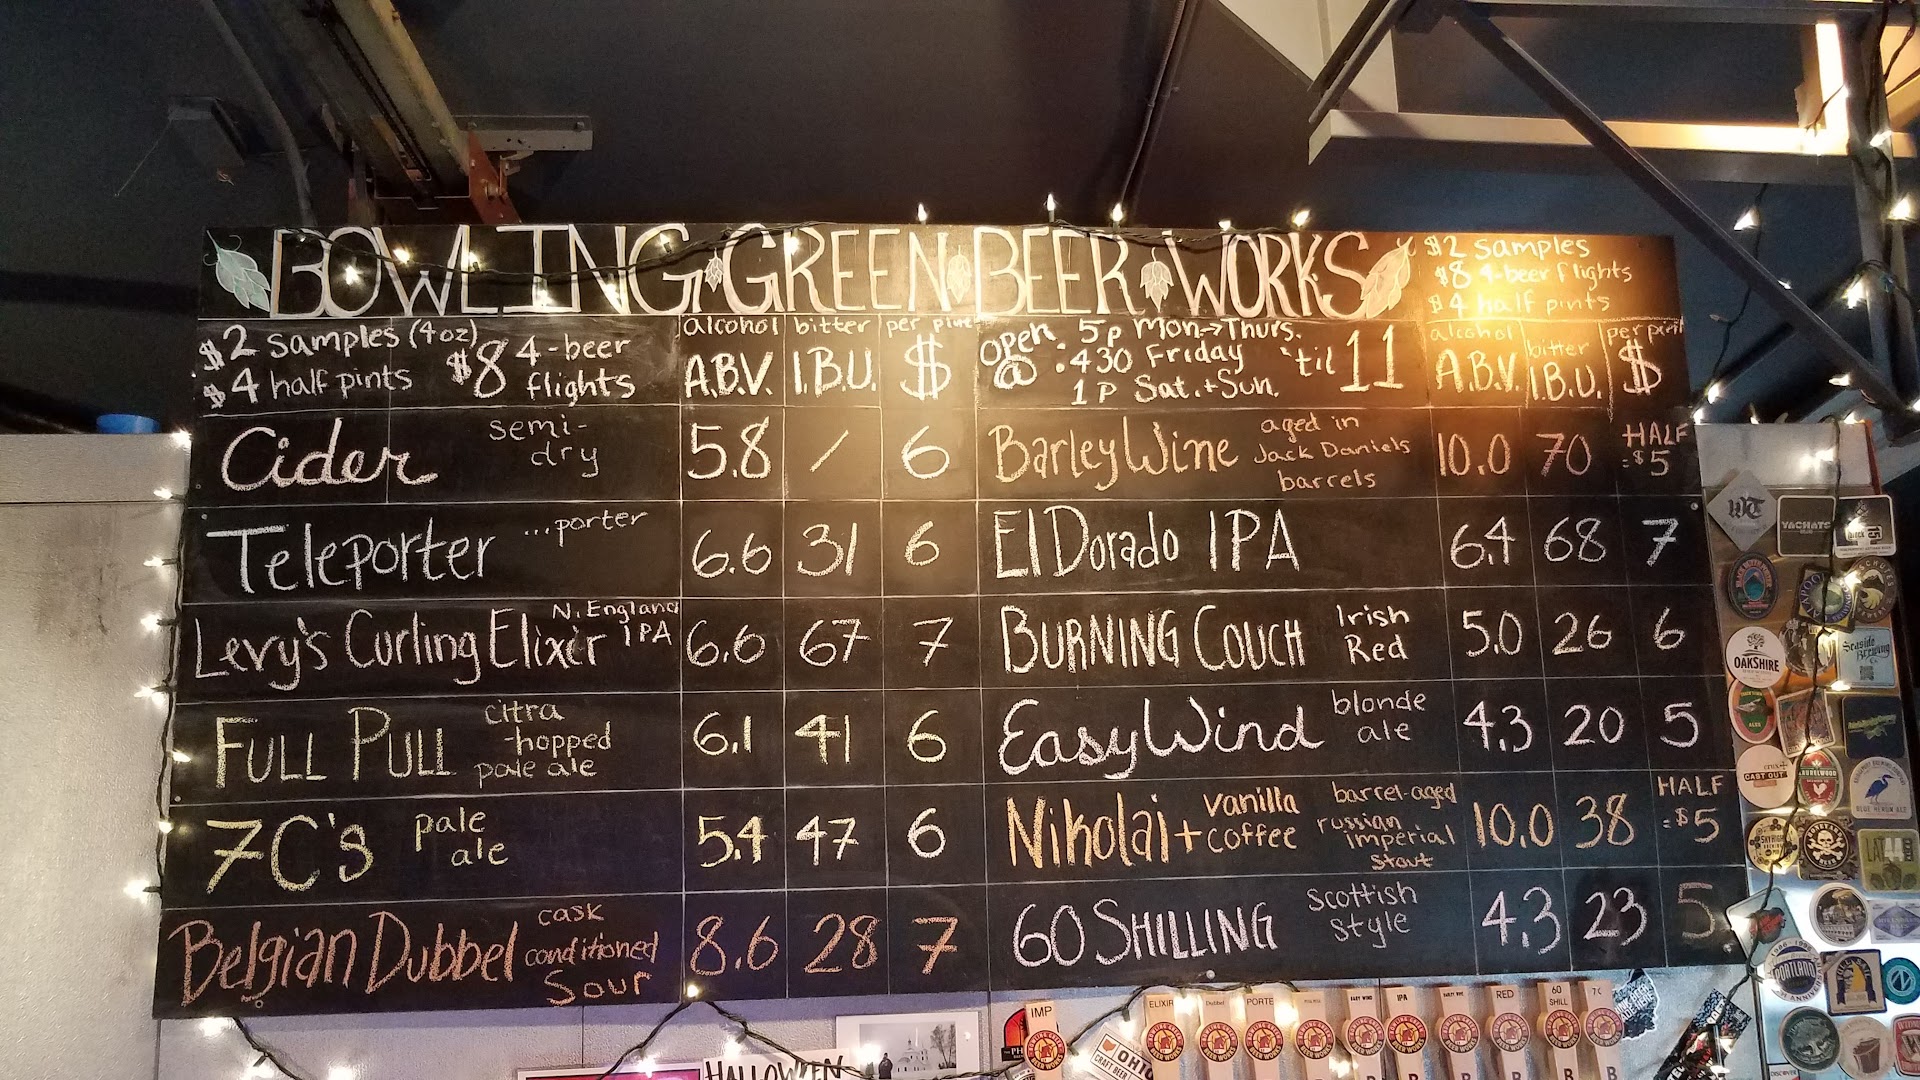 BOWLING GREEN BEER WORKS
$2 samples
$8 4-beer flights
$4 half pints
$2 samples (4oz)
$4 half pints
$8 4-beer
flights
alcohol
A.B.V.
bitter
I.B.U.
per pint
$
Open
@ :
5p Mon→Thurs.
430 Friday
1p Sat.+Sun.
'til 11
alcohol
A.B.V.
bitter
I.B.U.
per pint
$
Cider semi-
dry
5.8 / 6
Teleporter ...porter
6.6 31 6
Levy's Curling Elixer N. England
IPA
6.6 67 7
Full Pull citra
-hopped
pale ale
6.1 41 6
7C's pale
ale
5.4 47 6
Belgian Dubbel cask
conditioned
Sour
8.6 28 7
Barley Wine aged in
Jack Daniels
barrels
10.0 70 HALF
=$5
El Dorado IPA
6.4 68 7
Burning Couch Irish
Red
5.0 26 6
Easy Wind blonde
ale
4.3 20 5
Nikolai + vanilla
coffee
barrel-aged
russian
imperial
stout
10.0 38 HALF
=$5
60 Shilling scottish
style
4.3 23 5
WT
YACHATS
OAKSHIRE
Seaside
Brewing
CAST OUT
LAURELWOOD
BLUE HERON ALE
PORTLAND
IMP
ELIXIR
Dubbel
PORTE
EASY WIND
IPA
RED
60
SHILL
7C
OHIO
CRAFT BEER
HALLOWEEN